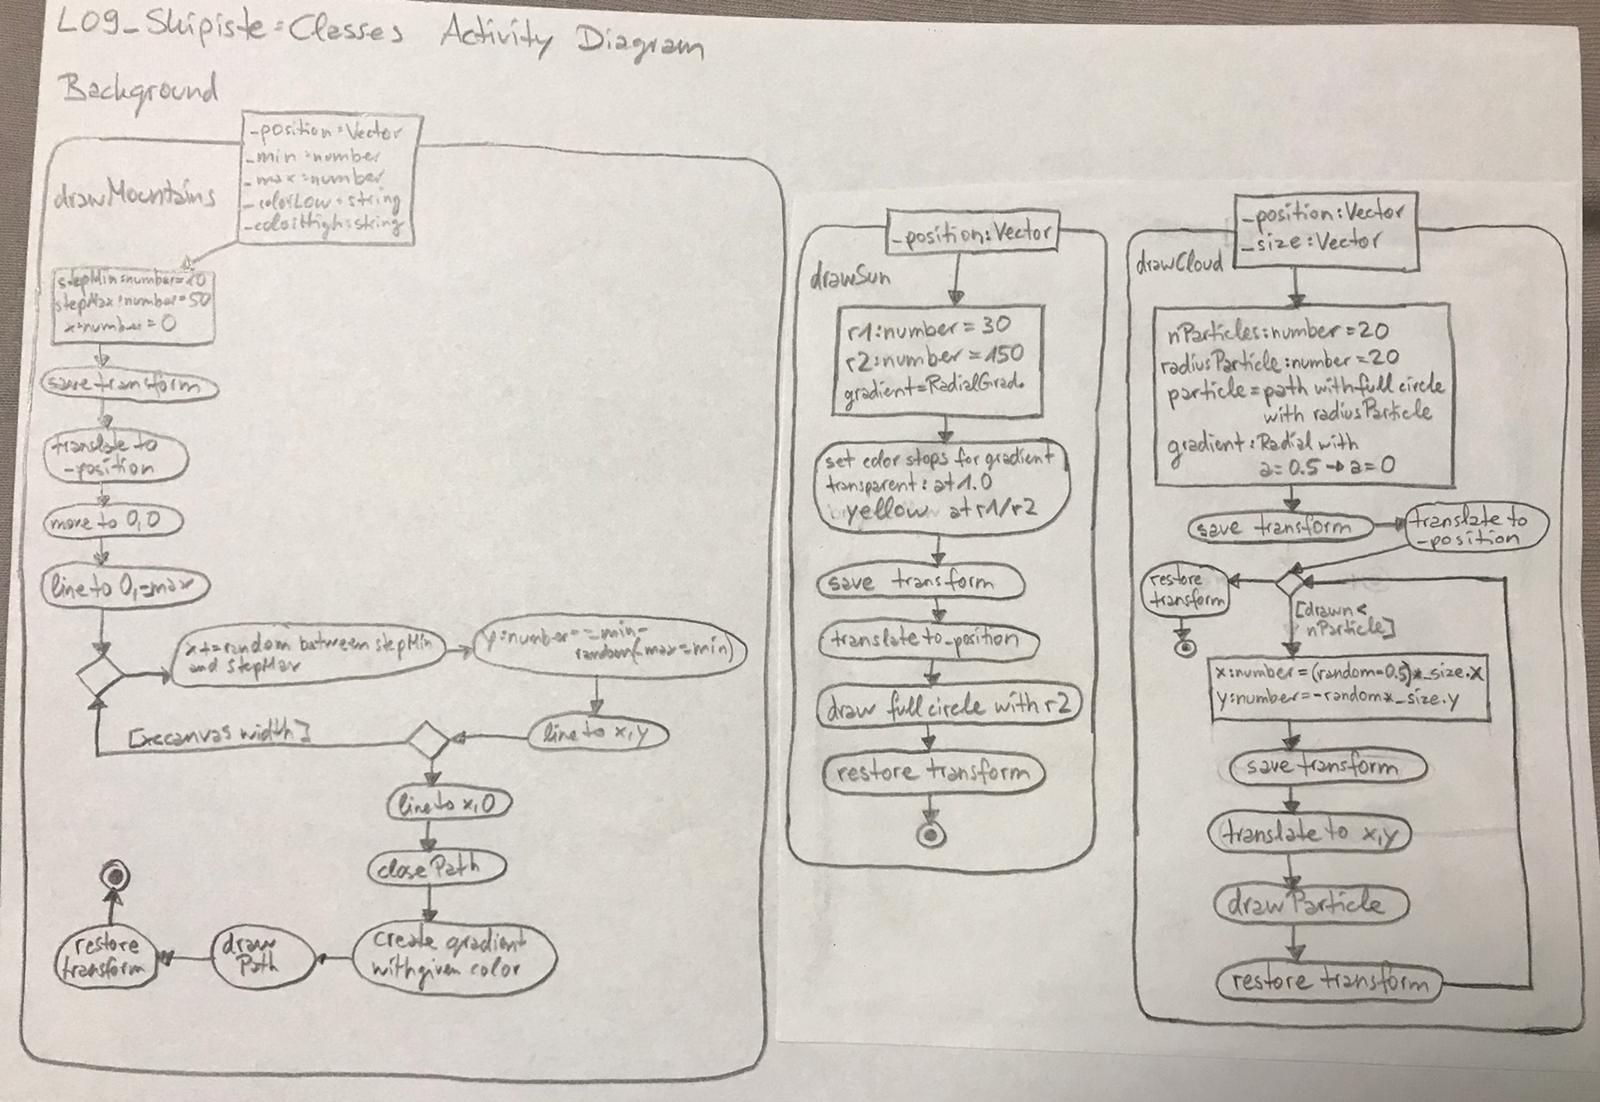 L09_Skipiste=Classes Activity Diagram
Background
_position:Vector
_min:number
_max:number
_colorLow:string
_colorHigh:string
drawMountains
stepMin:number=10
stepMax:number=50
x:number=0
save transform
translate to
_position
move to 0,0
line to 0,-max
x+=random between stepMin
and stepMax
y:number=_min-
random(_max-_min)
line to x,y
[x<canvas width]
line to x,0
close Path
create gradient
with given color
draw
Path
restore
transform
_position:Vector
drawSun
r1:number=30
r2:number=150
gradient=RadialGrad.
set color stops for gradient
transparent: at 1.0
yellow at r1/r2
save transform
translate to _position
draw full circle with r2
restore transform
_position:Vector
_size:Vector
drawCloud
nParticles:number=20
radiusParticle:number=20
particle=path with full circle
with radiusParticle
gradient:Radial with
a=0.5→a=0
save transform
translate to
_position
restore
transform
[drawn<
nParticle]
x:number=(random-0.5)*_size.x
y:number=-random*_size.y
save transform
translate to x,y
draw Particle
restore transform